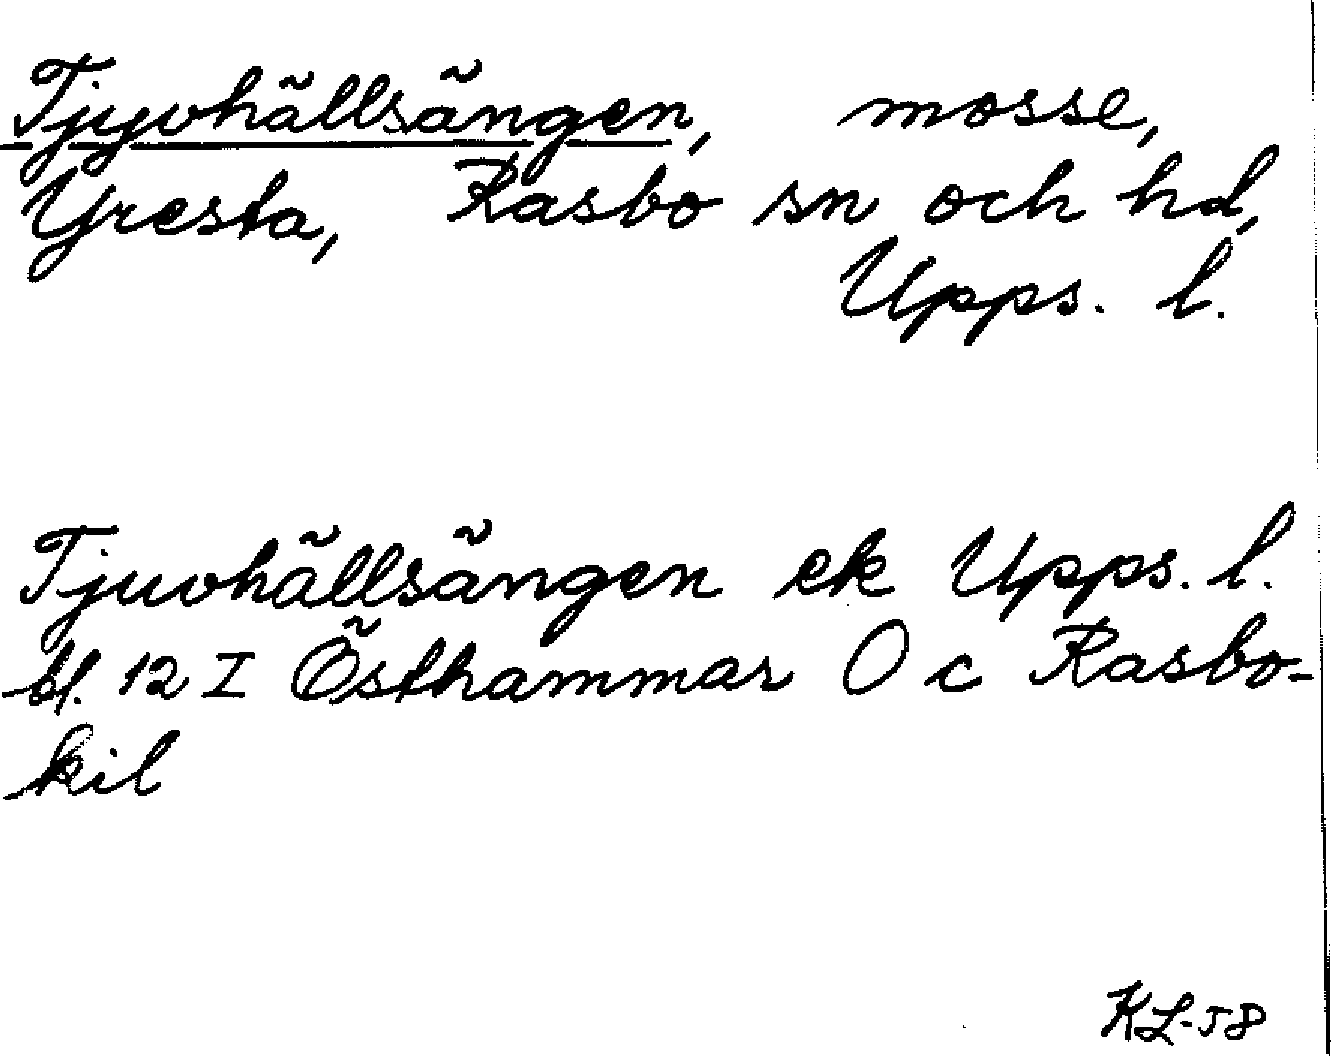 Tjuvhällsängen, mosse,
Yresta, Rasbo sn och hd,
Upps. l.
Tjuvhällsängen ek Upps. l.
bl. 12 I Östhammar O c Rasbo-
kil
KL-58